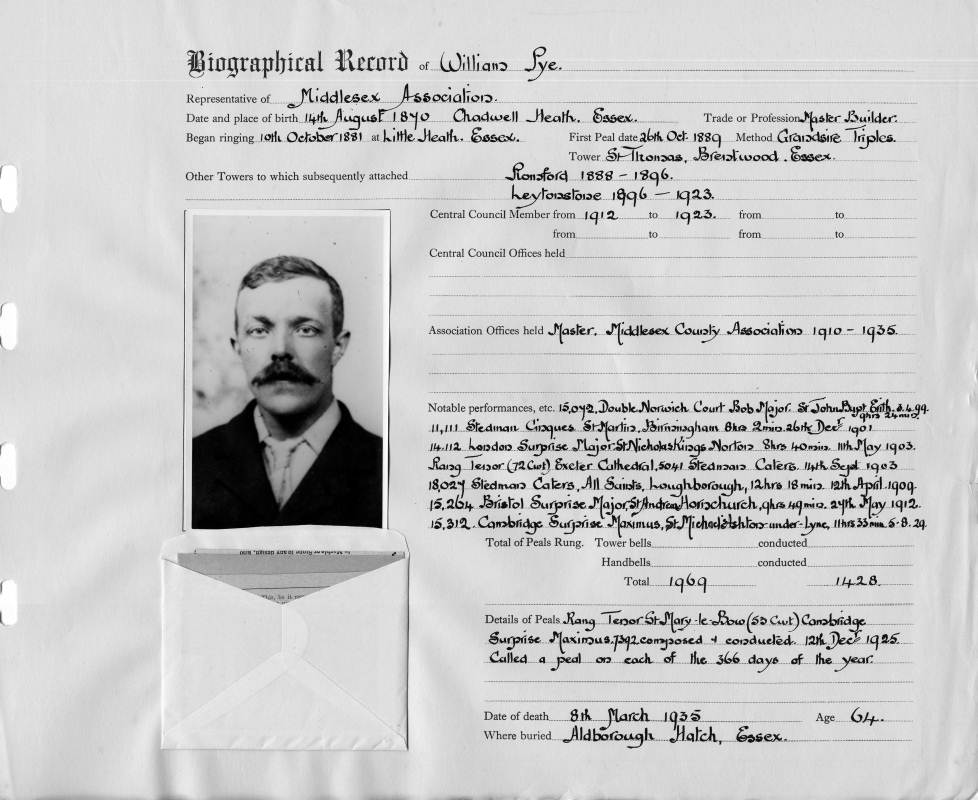 Biographical Record of William Pye.
Representative of Middlesex Association.
Date and place of birth 14th August 1870 Chadwell Heath. Essex. Trade or Profession Master Builder.
Began ringing 10th October 1881 at Little Heath. Essex. First Peal date 26th Oct. 1889 Method Grandsire Triples.
Tower St Thomas, Brentwood. Essex.
Other Towers to which subsequently attached Romford 1888 - 1896.
Leytonstone 1896 - 1923.
Central Council Member from 1912 to 1923. from to
from to from to
Central Council Offices held
Association Offices held Master. Middlesex County Association 1910 - 1935.
Notable performances, etc. 15,072, Double Norwich Court Bob Major. St John Bapt Erith. 3.4.99.
9hrs 24 min.
11,111 Stedman Cinques St Martin, Birmingham 8hrs 2min. 26th Decr 1901
14.112 London Surprise Major. St Nicholas Kings Norton 8hrs 40min. 11th May 1903.
Rang Tenor (72 Cwt) Exeter Cathedral, 5041 Stedman Caters. 14th Sept 1903
18,027 Stedman Caters, All Saints, Loughborough, 12hrs 18 min. 12th April 1909.
15,264 Bristol Surprise Major, St Andrew Hornchurch, 9hrs 49min. 27th May 1912.
15,312. Cambridge Surprise Maximus, St Michael's Ashton-under-Lyne, 11hrs 33min. 5-8.29.
Total of Peals Rung. Tower bells conducted
Handbells conducted
Total 1969 1428.
Details of Peals Rang Tenor St Mary-le-Bow (53 Cwt) Cambridge
Surprise Maximus. 7392 composed & conducted. 12th Decr 1925.
Called a peal on each of the 366 days of the year.
Date of death 8th March 1935 Age 64.
Where buried Aldborough Hatch, Essex.